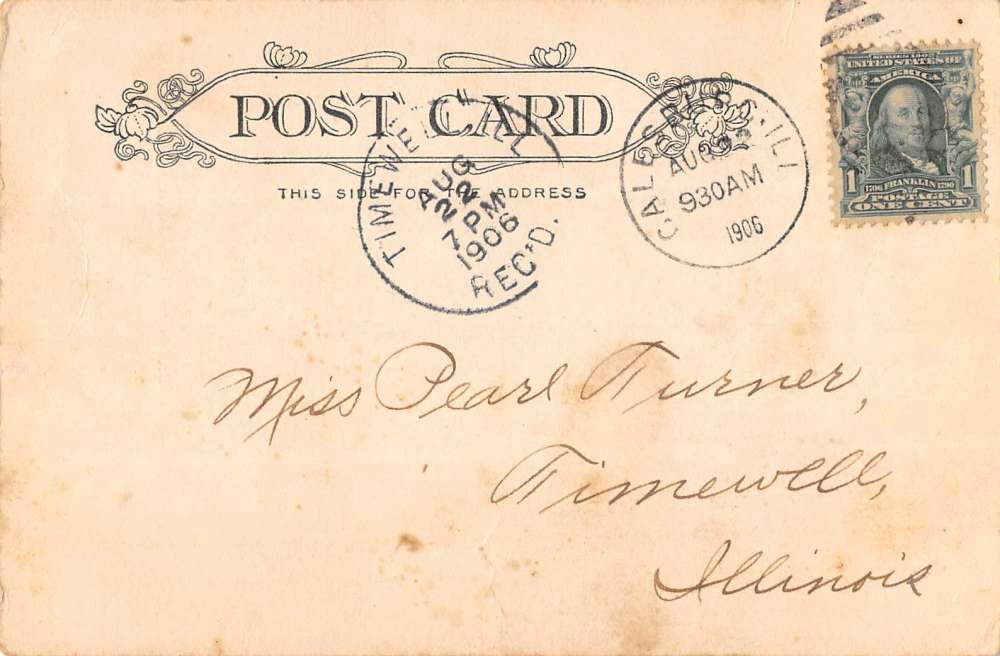 POST CARD
THIS SIDE FOR THE ADDRESS
TIMEWELL ILL
AUG
22
7 PM
1906
REC'D.
GALESBURG, ILL
AUG 22
930AM
1906
SERIES 1902
UNITED STATES OF
AMERICA
1 1706 FRANKLIN 1790 1
POSTAGE
ONE CENT
Miss Pearl Turner,
Timewell,
Illinois